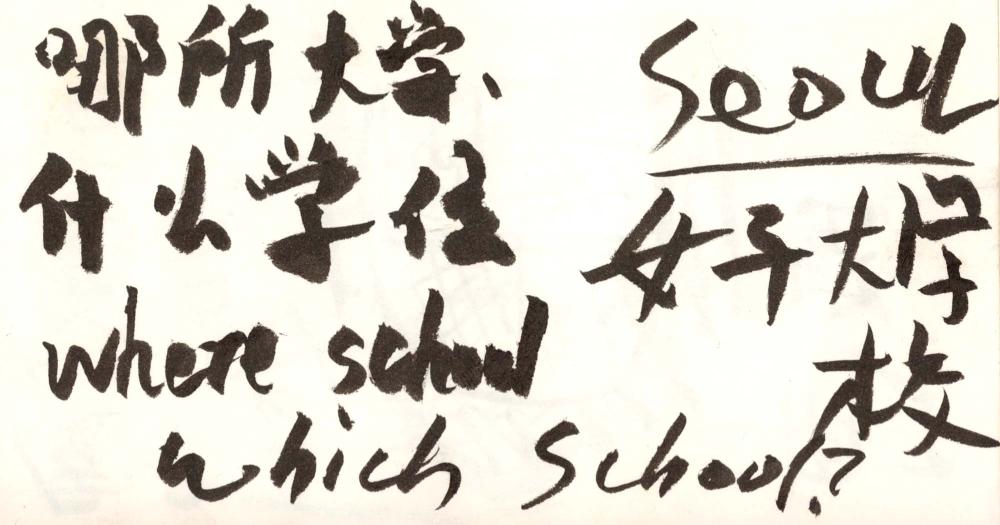 哪所大学、
什么学位
where school
which school?
Seoul
女子大学
校